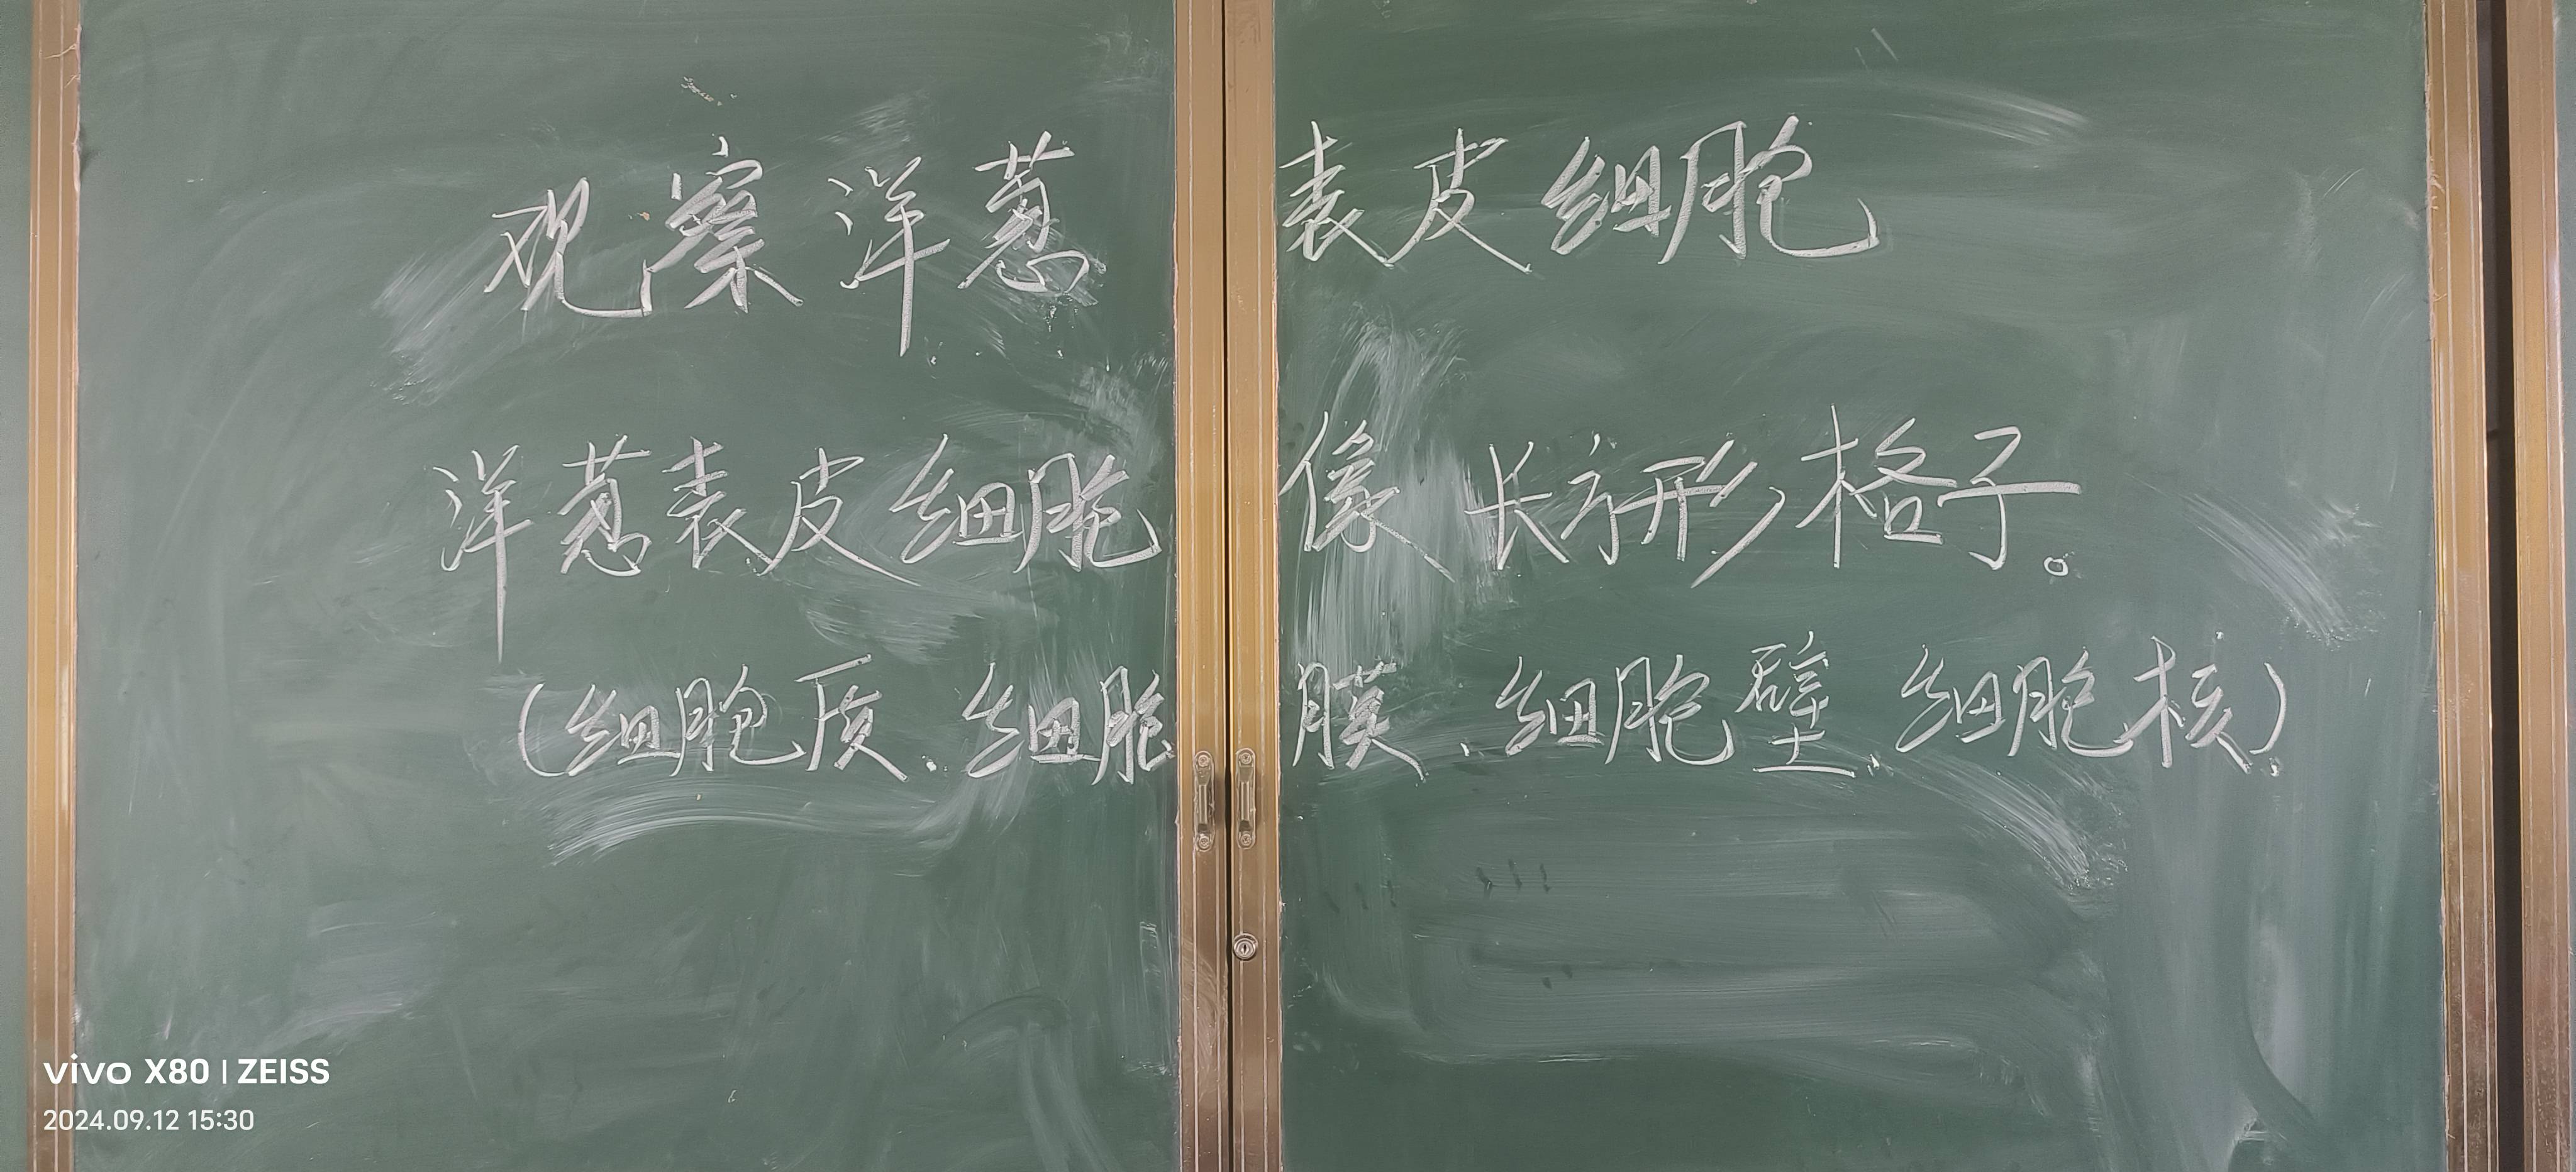 观察洋葱表皮细胞
洋葱表皮细胞像长方形格子。
(细胞质、细胞膜、细胞壁、细胞核)
vivo X80 | ZEISS
2024.09.12 15:30